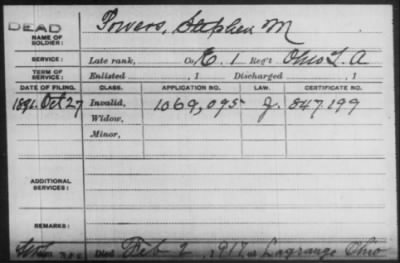 DEAD
NAME OF SOLDIER: Powers, Stephen M
SERVICE: Late rank, Co. E. 1 Reg't Ohio L. A
TERM OF SERVICE: Enlisted , 1 Discharged , 1
DATE OF FILING. CLASS. APPLICATION NO. LAW. CERTIFICATE NO.
1891 Oct 27 Invalid, 1069,095 J. 847,199
Widow,
Minor,
ADDITIONAL SERVICES:
REMARKS:
Died Feb 2, 1917, at Lagrange Ohio